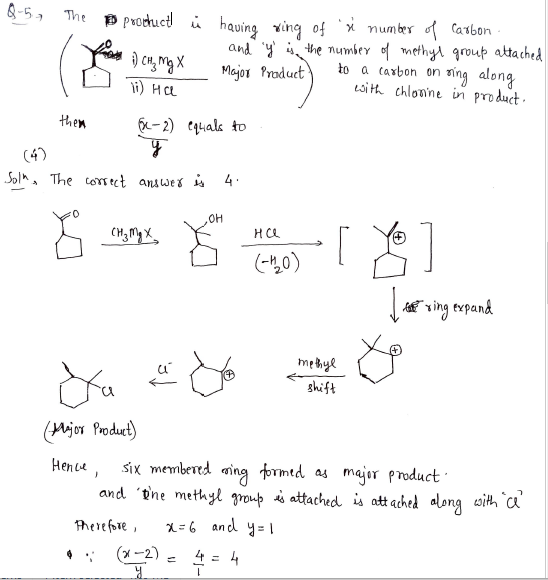 Q-5, The product is having ring of 'x' number of Carbon.
and 'y' is the number of methyl group attached
O
i) CH3MgX
ii) HCl
Major Product
to a carbon on ring along
with chlorine in product.
then (x-2)/y equals to
(4)
Soln, The correct answer is 4.
O
CH3MgX
OH
HCl
(-H2O)
⊕
ring expand
⊕
methyl
shift
⊕
Cl⁻
Cl
(Major Product)
Hence, six membered ring formed as major product.
and one methyl group is attached is attached along with "Cl"
Therefore, x=6 and y=1
∵ (x-2)/y = 4/1 = 4